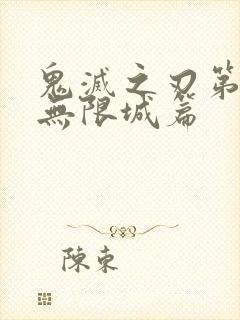 鬼滅之刃第
無限城篇
陳束